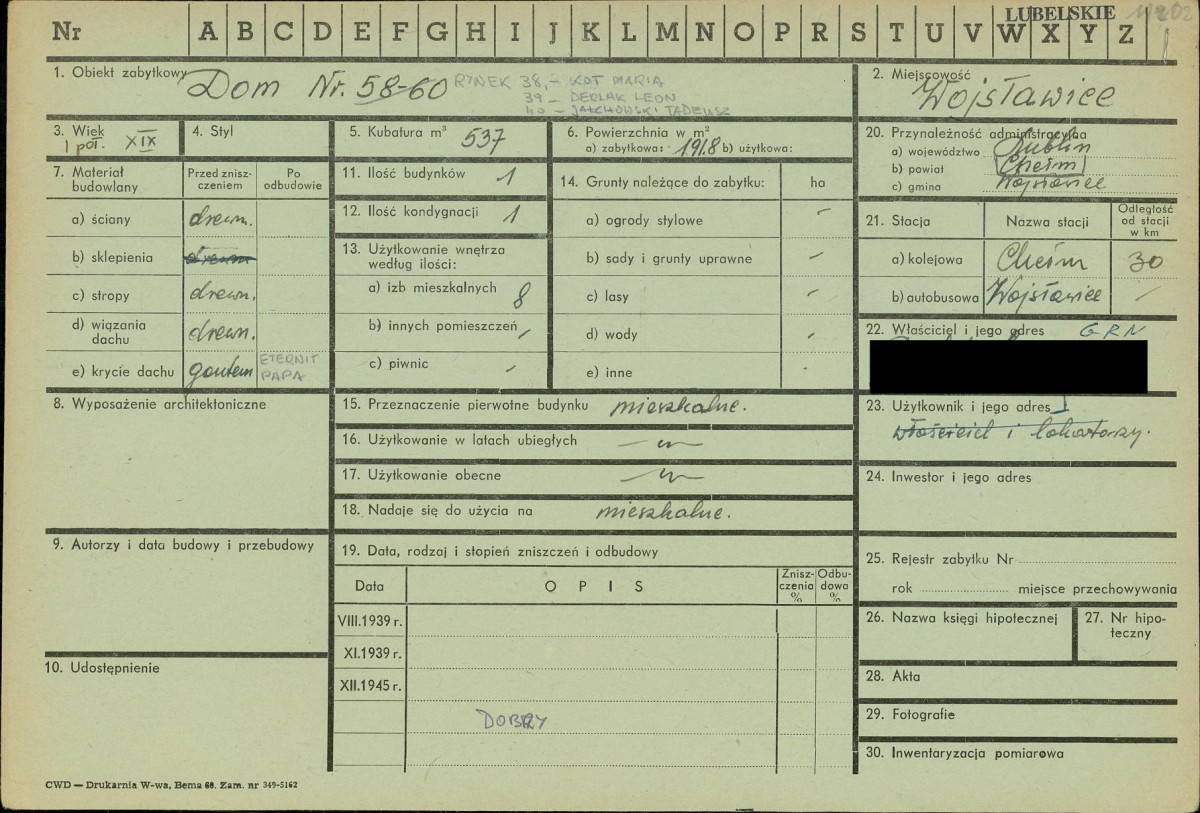 LUBELSKIE
Nr A B C D E F G H I J K L M N O P R S T U V W X Y Z
1. Obiekt zabytkowy Dom Nr. 58-60 RYNEK 38, – KOT MARIA
39 – DERLAK LEON
40 – JACHOWSKI TADEUSZ
2. Miejscowość
Wojsławice
3. Wiek
1 poł. XIX
4. Styl
5. Kubatura m³ 537
6. Powierzchnia w m²
a) zabytkowa: 191.8 b) użytkowa:
7. Materiał budowlany
Przed znisz-
czeniem
Po
odbudowie
a) ściany drewn.
b) sklepienia drewn.
c) stropy drewn.
d) wiązania
dachu drewn.
e) krycie dachu gontem ETERNIT
PAPA
8. Wyposażenie architektoniczne
9. Autorzy i data budowy i przebudowy
10. Udostępnienie
11. Ilość budynków 1
12. Ilość kondygnacji 1
13. Użytkowanie wnętrza
według ilości:
a) izb mieszkalnych 8
b) innych pomieszczeń /
c) piwnic /
14. Grunty należące do zabytku: ha
a) ogrody stylowe –
b) sady i grunty uprawne –
c) lasy –
d) wody –
e) inne -
15. Przeznaczenie pierwotne budynku mieszkalne.
16. Użytkowanie w latach ubiegłych —〃—
17. Użytkowanie obecne —〃—
18. Nadaje się do użycia na mieszkalne.
19. Data, rodzaj i stopień zniszczeń i odbudowy
Data O P I S Znisz-
czenia
%
Odbu-
dowa
%
VIII.1939 r.
XI.1939 r.
XII.1945 r.
DOBRY
20. Przynależność administracyjna
a) województwo Lublin
b) powiat Chełm
c) gmina Wojsławice
21. Stacja Nazwa stacji Odległość
od stacji
w km
a) kolejowa Chełm 30
b) autobusowa Wojsławice /
22. Właściciel i jego adres GRN
23. Użytkownik i jego adres
właściciel i lokatorzy.
24. Inwestor i jego adres
25. Rejestr zabytku Nr
rok miejsce przechowywania
26. Nazwa księgi hipotecznej
27. Nr hipo-
teczny
28. Akta
29. Fotografie
30. Inwentaryzacja pomiarowa
CWD — Drukarnia W-wa, Bema 60. Zam. nr 349-5162